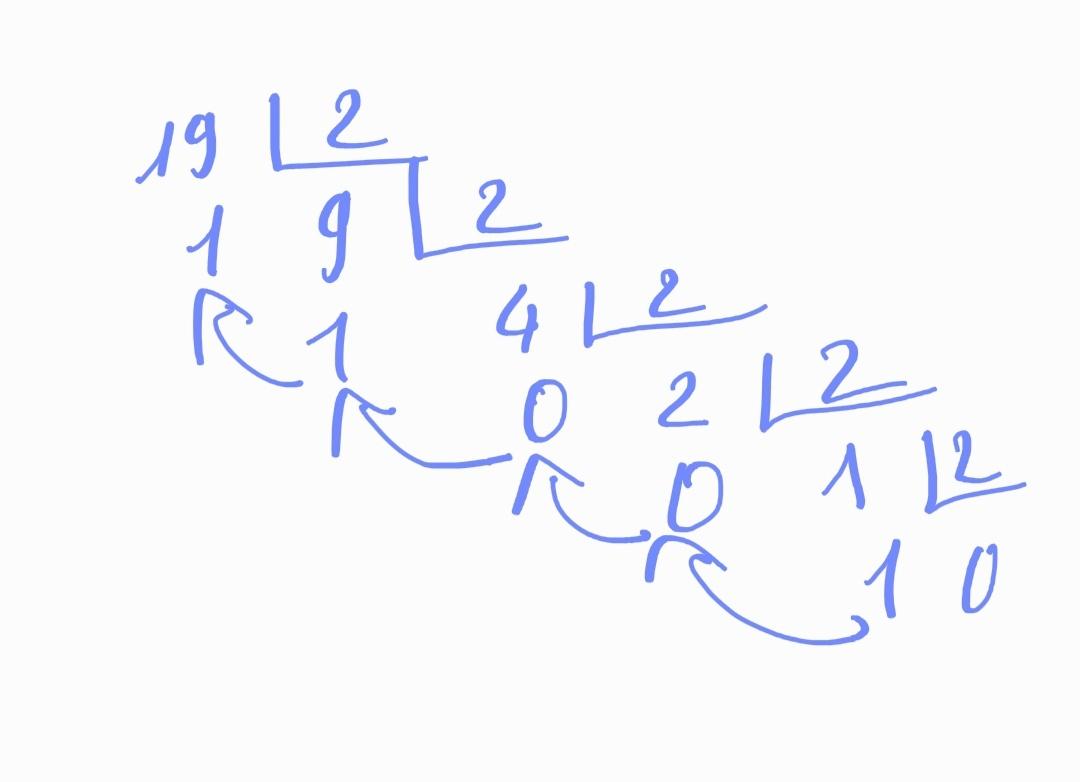 19 2
1 9 2
1 4 2
0 2 2
0 1 2
1 0